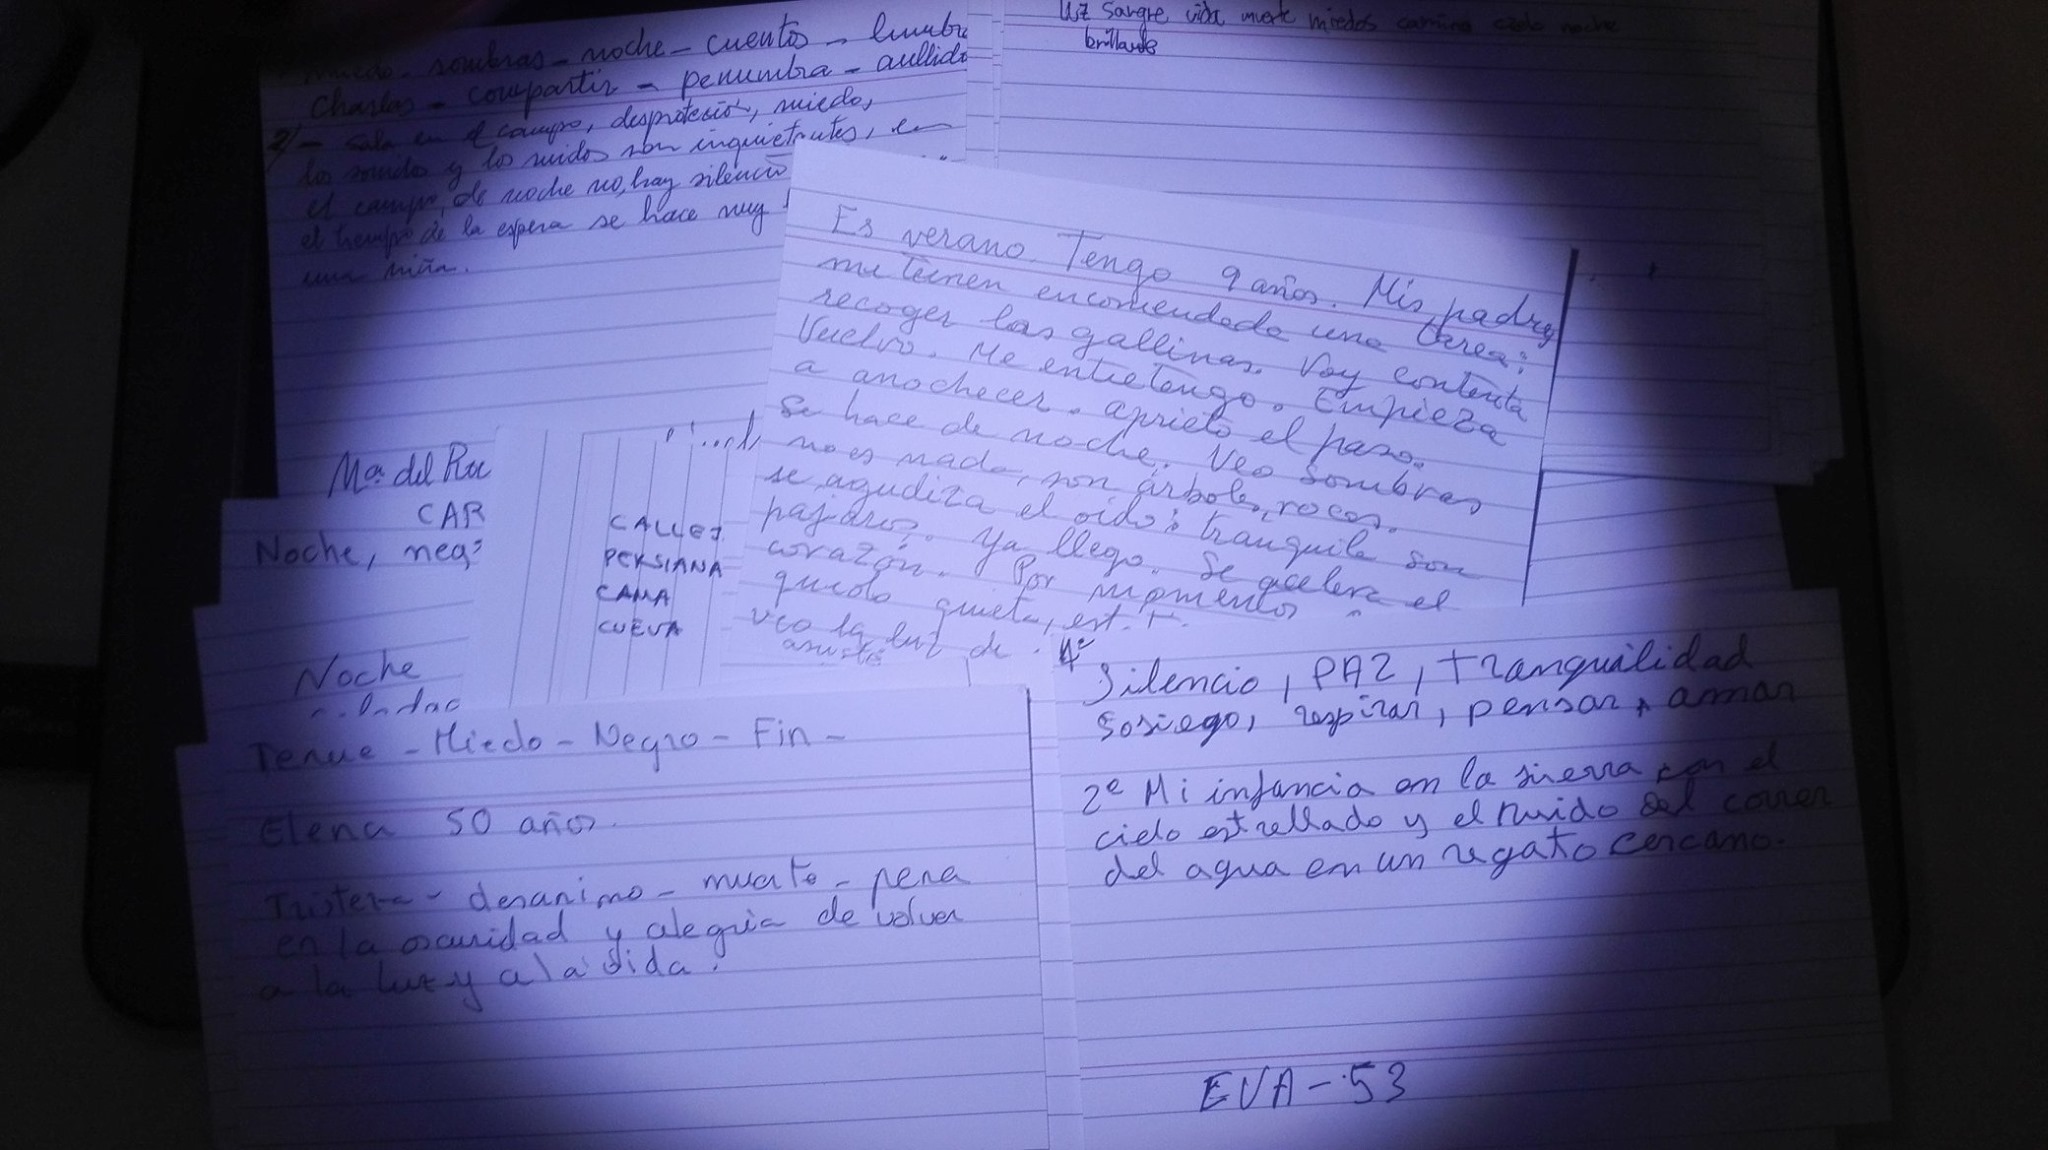 miedo - sombras - noche - cuentos - lumbre
Charlas - compartir - penumbra - aullido
2/ - Sola en el campo, desproteción, miedo,
los sonidos y los ruidos son inquietantes, en
el campo, de noche no, hay silencio
el tiempo de la espera se hace muy
una niña.
luz Sangre, vida muerte miedos camino cielo noche
brillante
Es verano. Tengo 9 años. Mis padres
me tienen encomendada una tarea:
recoger las gallinas. Voy contenta
Vuelvo. Me entretengo. Empieza
a anochecer. aprieto el paso.
Se hace de noche. Veo sombras
no es nada, son árboles, rocas.
se agudiza el oido: tranquila son
pajaros. Ya llego. Se acelera el
corazón. Por momentos
quedo quieta,
veo la luz de
Mª. del
CAR
Noche,
CALLEJ
PERSIANA
CAMA
CUEVA
Noche
Tenue - Miedo - Negro - Fin -
Elena 50 años.
Tristeza - desanimo - muerte - pena
en la oscuridad y alegria de volver
a la luz y a la vida.
Silencio, PAZ, tranquilidad
Sosiego, respirar, pensar, amar
2º Mi infancia en la sierra con el
cielo estrellado y el ruido del correr
del agua en un regato cercano.
EVA - 53